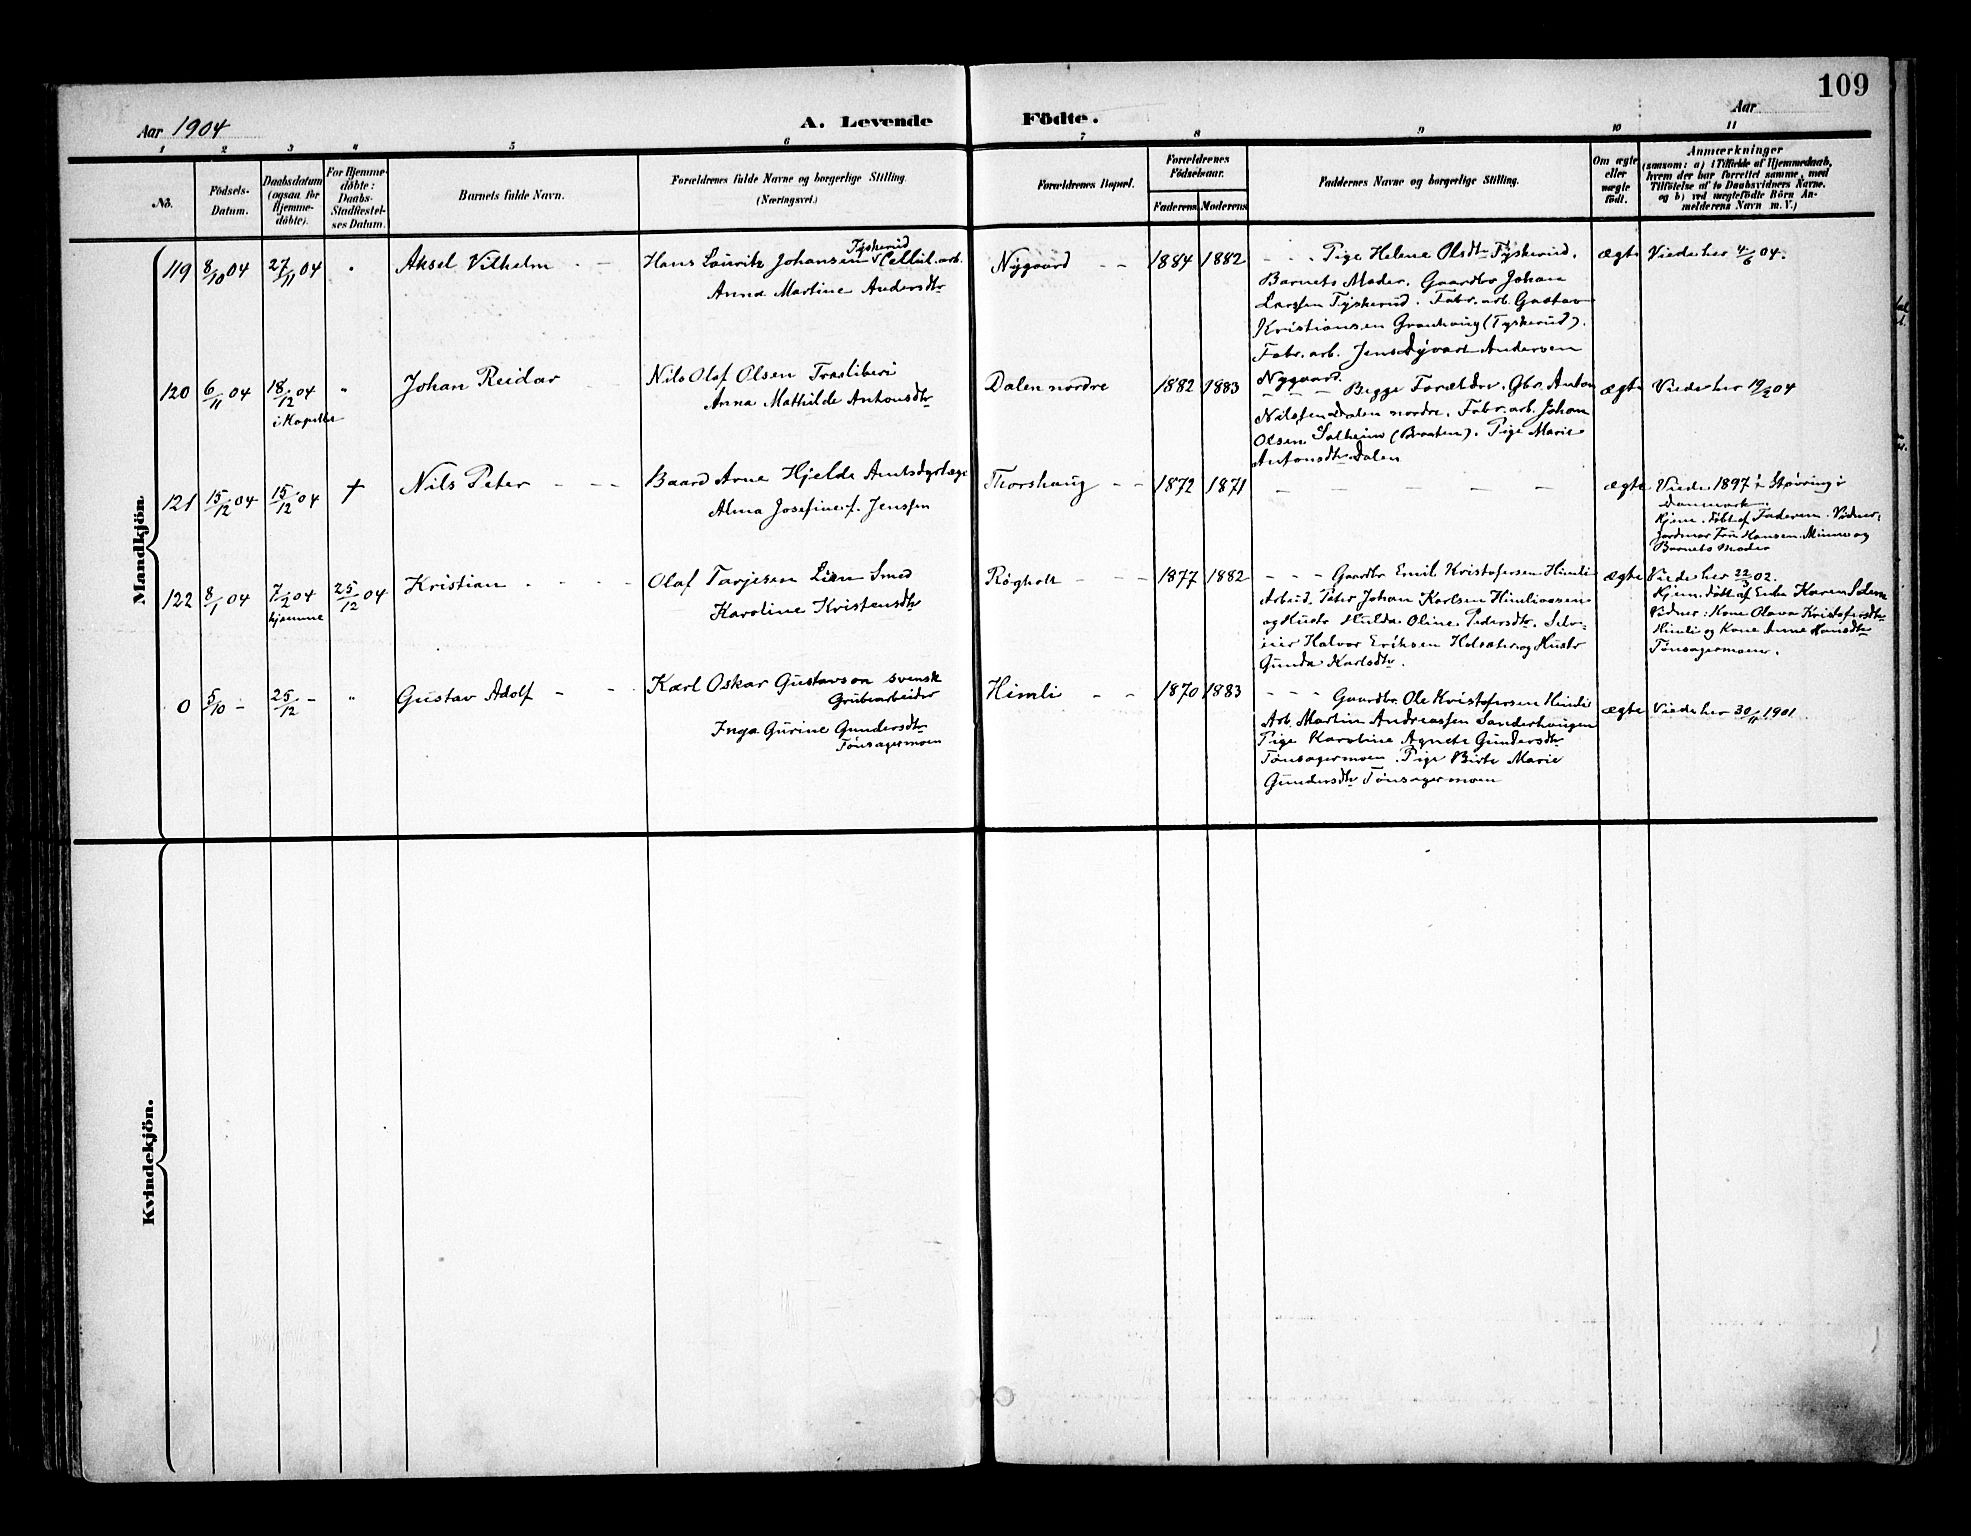 109
Aar 1904
A. Levende Födte.
Aar
1 2 3 4 5 6 7 8 9 10 11
No.
Födsels-Datum.
Daabsdatum (ogsaa for Hjemme-døbte).
For Hjemme-døbte: Daabs-Stadfæstel-ses Datum.
Barnets fulde Navn.
Forældrenes fulde Navne og borgerlige Stilling. (Næringsvei.)
Forældrenes Bopæl.
Forældrenes Födselsaar.
Faderens Moderens
Faddernes Navne og borgerlige Stilling.
Om ægte eller uægte födt.
Anmærkninger
(saasom: a) i Tilfælde af Hjemmedaab,
hvem der har forrettet samme, med
Tilföielse af to Daabsvidners Navne,
og b) ved uægtefödte Börn An-
melderens Navn m. V.)
Mandkjön
119 8/10 04 27/11 04 Aksel Vilhelm
Tyskerud
Hans Lauritz Johansen Cellul. arb.
Anna Martine Andersdtr
Nygaard 1884 1882
Pige Helene Olsdtr Tyskerud.
Barnets Moder. Gaardbr Johan
Larssen Tyskerud. Fabr. arb. Gustav
Kristiansen Granhaug (Tyskerud).
Fabr. arb. Jens Andersen
Nygaard.
ægte Viede her 4/6 04.
120 6/11 04 18/12 04 " Johan Reidar
i Kapellet
Nils Olaf Olsen Træsliberi
Anna Mathilde Antonsdtr
Dalen nordre 1882 1883
Begge Forældre. Gbr. Anton
Nilssen Dalen nordre. Fabr. arb. Johan
Olsen Solheim (Braaten). Pige Marie
Antonsdtr Dalen
ægte Viede her 19/2 04
121 15/12 04 15/12 04 † Nils Peter
Baard Arne Hjelde Amtsdyrlæge
Alma Josefine f. Jenssen
Thorshaug 1872 1871
ægte Viede 1897 i Støvring i
Danmark.
Hjem. døbt af Faderen. Vidner:
Jordmor Fru Hansen. Minne og
Barnets Moder
122 8/1 04 7/2 04 25/12 04 Kristian
hjemme
Olaf Tarjesen Lien Smed
Karoline Kristensdtr
Røgholt 1877 1882
Gaardbr Emil Kristofersen Himli
Arbud. Peter Johan Karlsen Himliaasen
og Hustr Hulda Oline Pedersdtr. Selv-
eier Halvor Eriksen Holsæter og Hustr
Gunda Karlsdtr.
ægte Viede her 22/3 02.
Hjem. døbt af Enke Karen
Vidner: Kone Olava Kristofersdtr
Himli og Kone Anne Hansdtr
Tønsagermoen.
0 5/10 - 25/12 - " Gustav Adolf
Karl Oskar Gustavson svensk
Grubearbeider
Inga Gurine Gundersdtr
Tønsagermoen
Himli 1870 1883
Gaardbr. Ole Kristofersen Himli
Arb. Martin Andreassen Sanderhaugen
Pige Karoline Agnete Gundersdtr
Tønsagermoen. Pige Birte Marie
Gundersdtr Tønsagermoen
ægte Viede her 30/11 1901.
Kvindekjön.